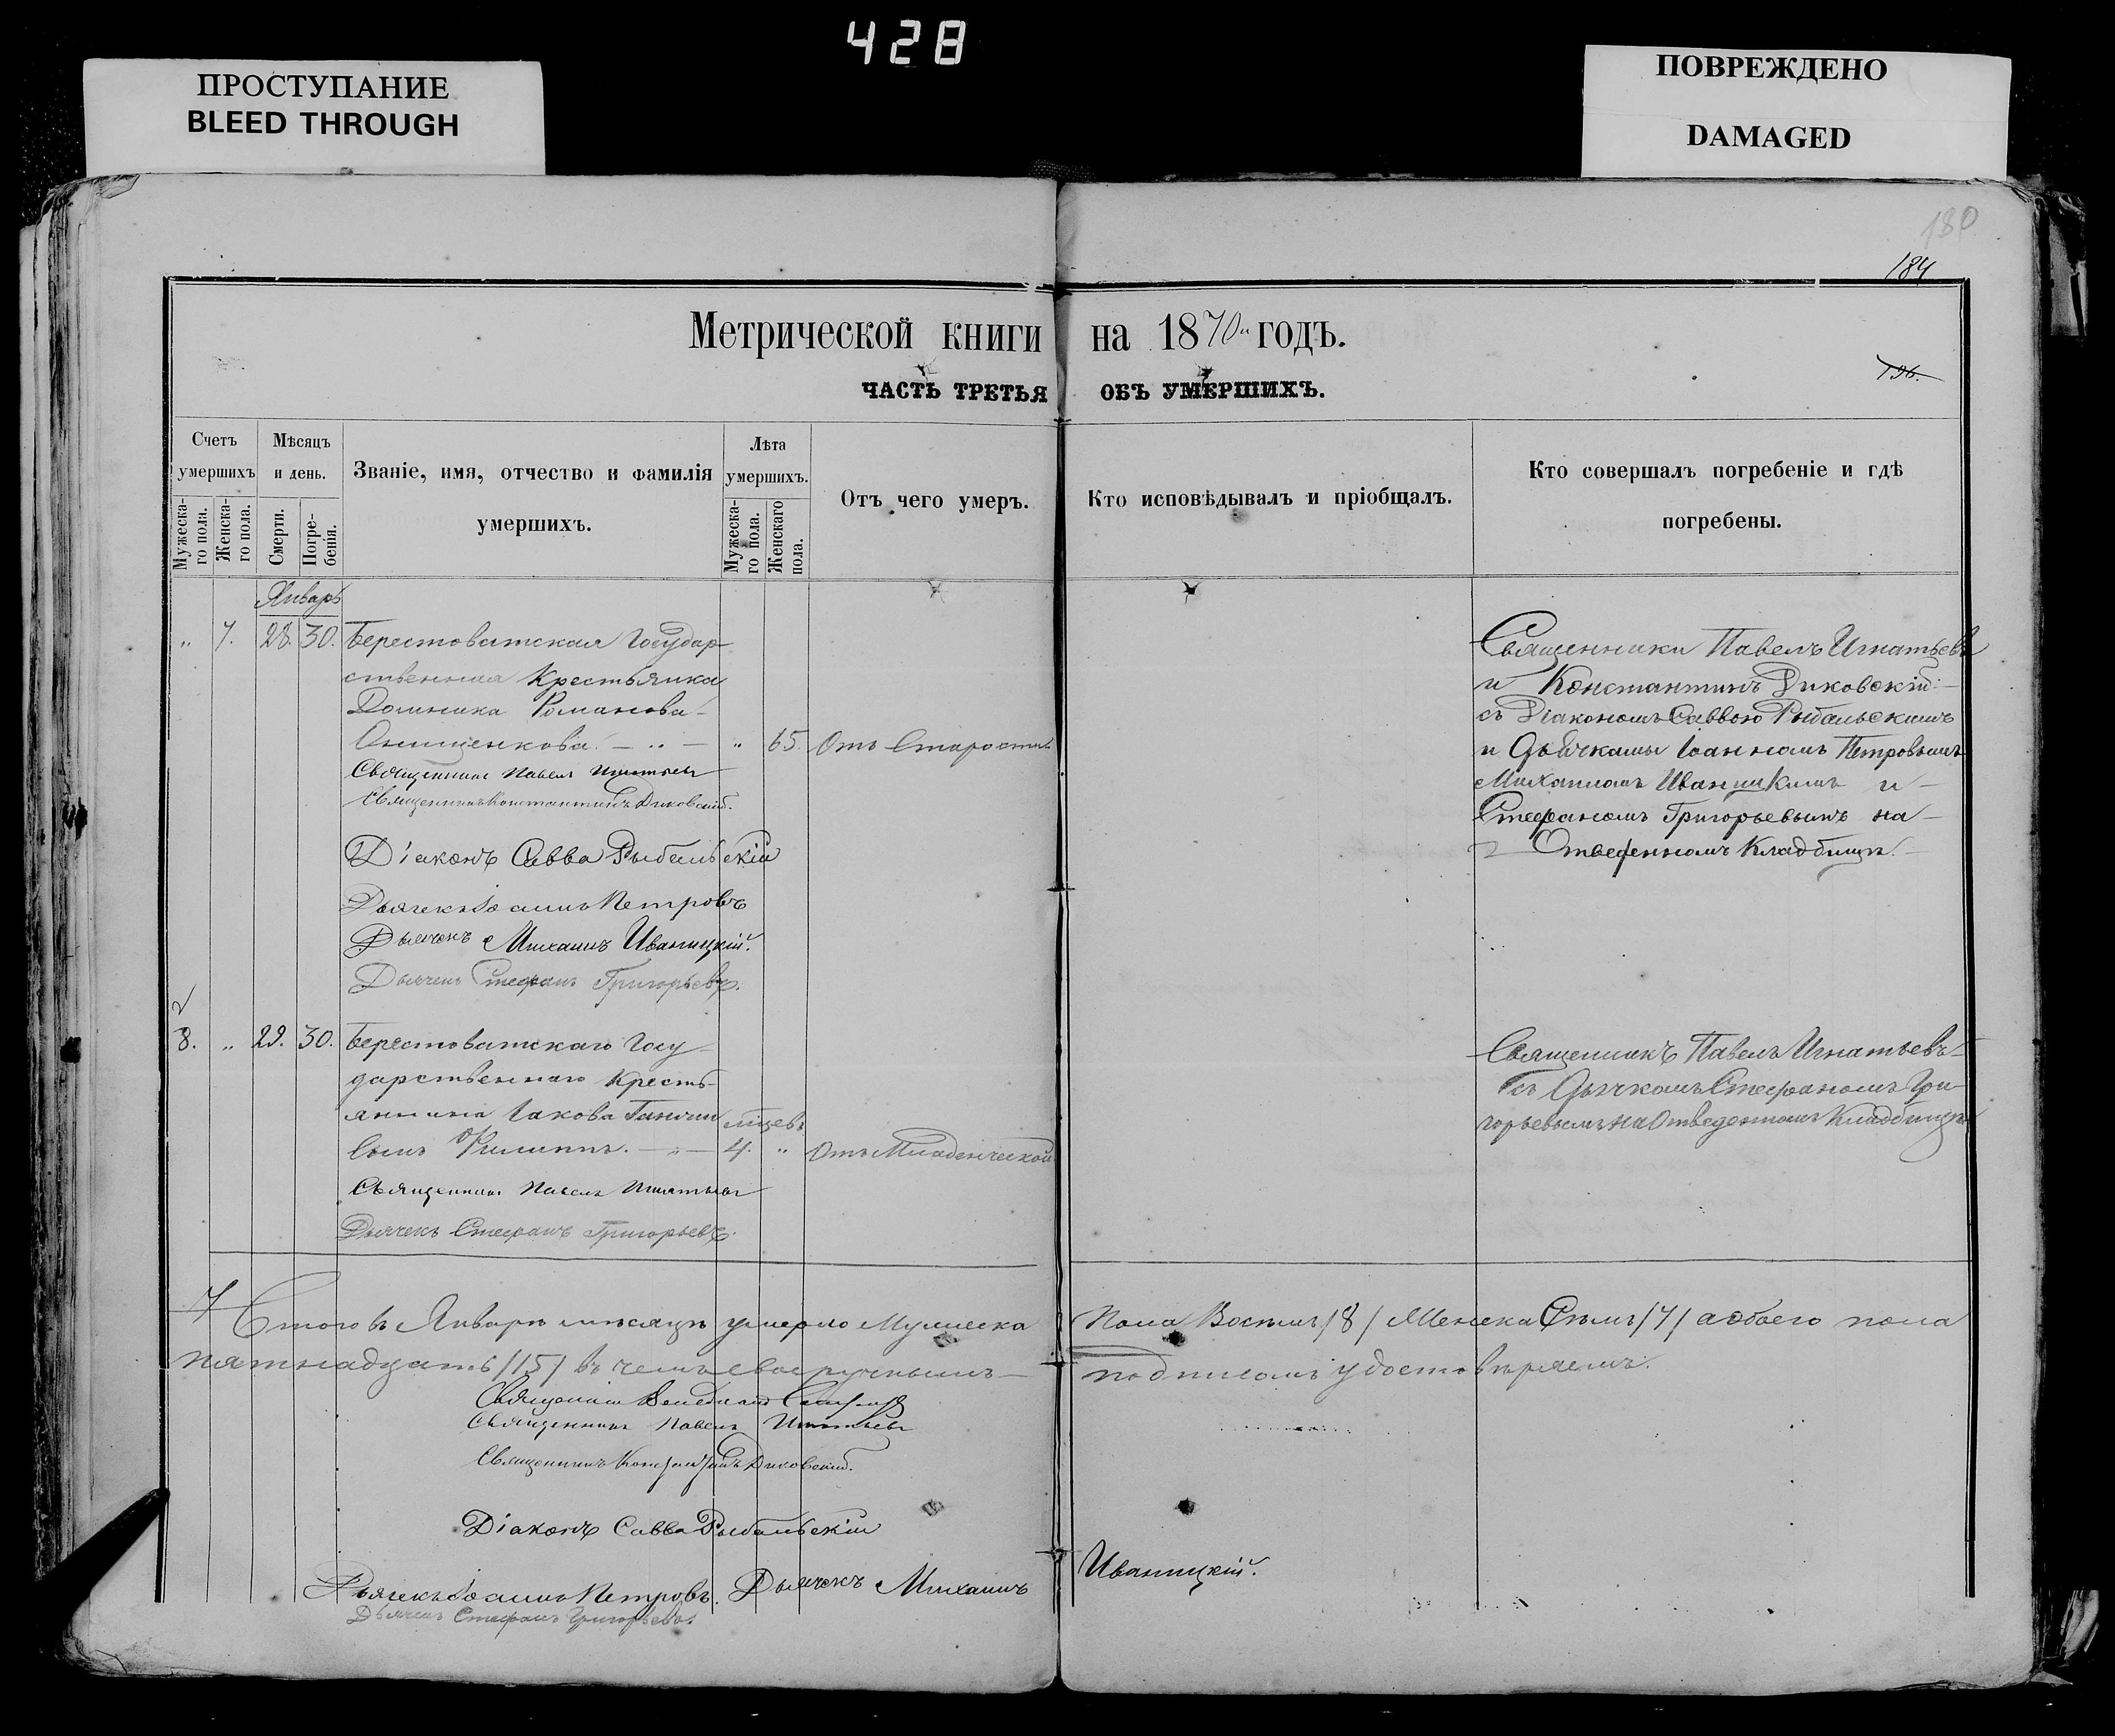 428
ПРОСТУПАНИЕ
BLEED THROUGH
ПОВРЕЖДЕНО
DAMAGED
180
184
Метрической книги на 1870 годъ.
196.
ЧАСТЬ ТРЕТЬЯ ОБЪ УМЕРШИХЪ.
Счетъ умершихъ
Мѣсяцъ и день.
Званіе, имя, отчество и фамилія умершихъ.
Лѣта умершихъ.
Отъ чего умеръ.
Кто исповѣдывалъ и пріобщалъ.
Кто совершалъ погребеніе и гдѣ погребены.
Мужеска-го пола.
Женска-го пола.
Смерти.
Погре-бенія.
Мужеска-го пола.
Женскаго пола.
Январь
„ 7. 28. 30. Берестоватская Государ-
ственная Крестьянка
Романова
Онищенкова. — „ — „ 65 Отъ Старости
Священникъ Павелъ Игнатьевъ
Священникъ Константинъ Диковскій.
Діаконъ Савва Рыбальскій
Дьячекъ Іоаннъ Петровъ
Дьячекъ Михаилъ Иваницкій.
Дьячекъ Стефанъ Григорьевъ.
Священники Павелъ Игнатьевъ
и Константинъ Диковскій —
съ Діакономъ Саввою Рыбальскимъ
и Дьячками Іоанномъ Петровымъ
Михаиломъ Иваницкимъ и —
Стефаномъ Григорьевымъ на —
Отведенномъ Кладбищѣ. —
8. „ 29. 30. Берестоватскаго Госу-
дарственнаго Кресть-
янина Іакова
сынъ Филиппъ. — „ — 4. „ Отъ Младенческой
Священникъ Павелъ Игнатьевъ
Дьячекъ Стефанъ Григорьевъ.
Священникъ Павелъ Игнатьевъ
съ Дьячкомъ Стефаномъ Гри-
горьевымъ на Отведенномъ Кладбищѣ
7
Итого въ Январѣ мѣсяцѣ умерло Мужеска пола Восемь /8/ Женска Семь /7/ а обоего пола
пятнадцать /15/ въ чемъ своеручнымъ — подписомъ удостовѣряемъ.
Священникъ
Священникъ Павелъ Игнатьевъ
Священникъ Константинъ Диковскій.
Діаконъ Савва Рыбальскій
Дьячекъ Іоаннъ Петровъ. Дьячекъ Михаилъ Иваницкій.
Дьячекъ Стефанъ Григорьевъ.